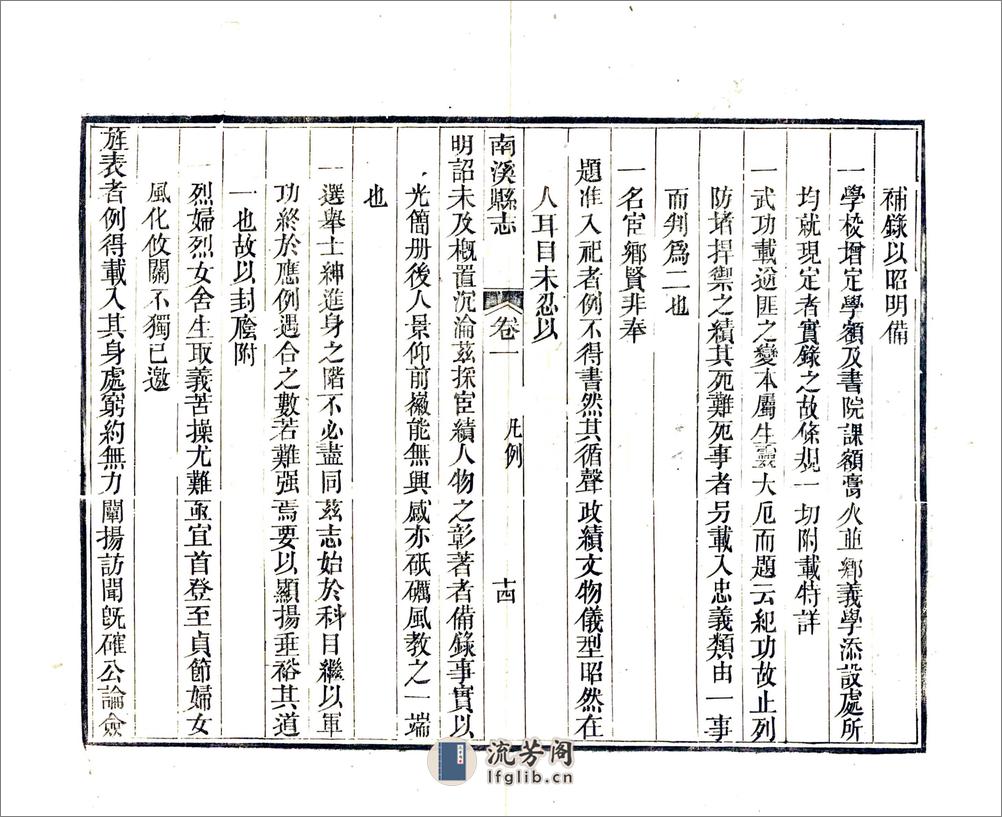 補錄以昭明備
一學校增定學額及書院課額膏火並鄉義學添設處所
均就現定者實錄之故條規一切附載特詳
一武功載逆匪之變本屬生靈大厄而題云紀功故止列
防堵捍禦之績其死難死事者另載入忠義類由一事
而判爲二也
一名宦鄉賢非奉
題准入祀者例不得書然其循聲政績文物儀型昭然在
人耳目未忍以
南溪縣志
卷一
凡例
十四
明詔未及概置沉淪茲採宦績人物之彰著者備錄事實以
光簡册後人景仰前徽能無興感亦砥礪風教之一端
也
一選舉士紳進身之階不必盡同茲志始於科目繼以軍
功終於應例遇合之數若難强焉要以顯揚垂裕其道
一也故以封廕附
一烈婦烈女舍生取義苦操尤難亟宜首登至貞節婦女
風化攸關不獨已邀
旌表者例得載入其身處窮約無力闡揚訪聞旣確公論僉
流芳阁
lfglib.cn